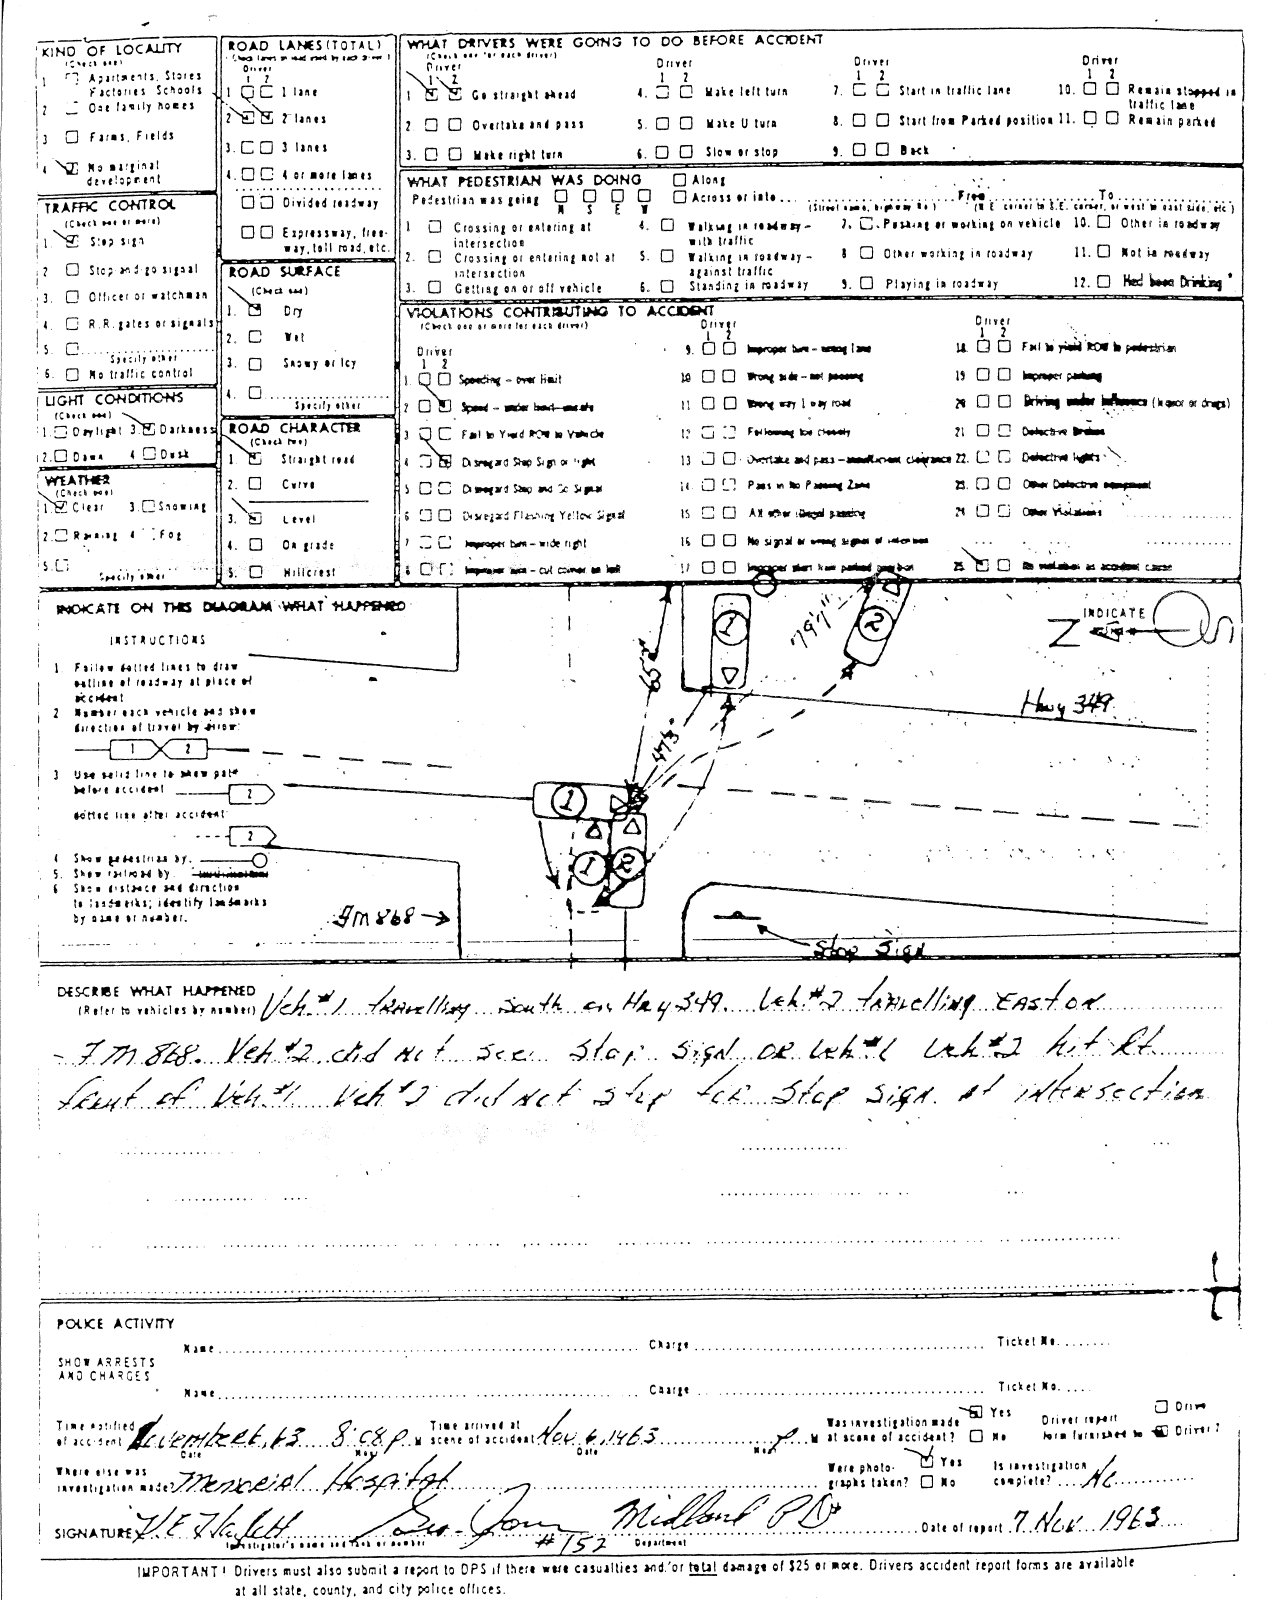 KIND OF LOCALITY
(Check one)
1 Apartments, Stores
Factories, Schools
2 One family homes
3 Farms, Fields
4 No marginal
development
TRAFFIC CONTROL
(Check one or more)
1. Stop sign
2 Stop and go signal
3. Officer or watchman
4. R.R. gates or signals
5.
Specify other
6. No traffic control
LIGHT CONDITIONS
(Check one)
1. Daylight 3. Darkness
2. Dawn 4 Dusk
WEATHER
(Check one)
1. Clear 3. Snowing
2. Raining 4 Fog
5.
Specify other
ROAD LANES (TOTAL)
(Check lanes on road used by each driver)
Driver
1 2
1 1 lane
2 2 lanes
3. 3 lanes
4. 4 or more lanes
Divided roadway
Expressway, free-
way, toll road, etc.
ROAD SURFACE
(Check one)
1. Dry
2. Wet
3. Snowy or Icy
4.
Specify other
ROAD CHARACTER
(Check two)
1. Straight road
2. Curve
3. Level
4. On grade
5. Hillcrest
WHAT DRIVERS WERE GOING TO DO BEFORE ACCIDENT
(Check one for each driver)
Driver
1 2
1 Go straight ahead
2 Overtake and pass
3. Make right turn
Driver
1 2
4. Make left turn
5. Make U turn
6. Slow or stop
Driver
1 2
7. Start in traffic lane
8. Start from Parked position
9. Back
Driver
1 2
10. Remain stopped in
traffic lane
11. Remain parked
WHAT PEDESTRIAN WAS DOING
Along
Pedestrian was going N S E W Across or into From To
(Street name, highway No.) (N.E. corner to S.E. corner, or west to east side, etc.)
1 Crossing or entering at
intersection
2. Crossing or entering not at
intersection
3. Getting on or off vehicle
4. Walking in roadway -
with traffic
5. Walking in roadway -
against traffic
6. Standing in roadway
7. Pushing or working on vehicle
8 Other working in roadway
9. Playing in roadway
10. Other in roadway
11. Not in roadway
12. Had been Drinking
VIOLATIONS CONTRIBUTING TO ACCIDENT
(Check one or more for each driver)
Driver
1 2
1. Speeding - over limit
2 Speed - under limit - unsafe
3 Fail to Yield ROW to Vehicle
4 Disregard Stop Sign or light
5 Disregard Stop and Go Signal
6 Disregard Flashing Yellow Signal
7 Improper turn - wide right
8 Improper turn - cut corner on left
Driver
1 2
9. Improper turn - wrong lane
10 Wrong side - not passing
11 Wrong way 1 way road
12 Following too closely
13 Overtake and pass - insufficient clearance
14 Pass in No Passing Zone
15 All other illegal passing
16 No signal or wrong signal of intention
17 Improper start from parked position
Driver
1 2
18. Fail to yield ROW to pedestrian
19 Improper parking
20 Driving under influence (liquor or drugs)
21 Defective Brakes
22. Defective lights
23. Other Defective equipment
24 Other Violations
25 No violation as accident cause
INDICATE ON THIS DIAGRAM WHAT HAPPENED
INSTRUCTIONS
1 Follow dotted lines to draw
outline of roadway at place of
accident
2 Number each vehicle and show
direction of travel by arrow:
1 2
3 Use solid line to show path
before accident 2
dotted line after accident
2
4 Show pedestrian by:
5. Show railroad by
6 Show distance and direction
to landmarks; identify landmarks
by name or number.
INDICATE
N
1
2
79'7"
65'
47'3"
Hwy 349
1
1 2
FM 868
Stop Sign
DESCRIBE WHAT HAPPENED Veh #1 travelling South on Hwy 349. Veh #2 travelling East on
(Refer to vehicles by number)
FM 868. Veh #2 did not see Stop Sign or Veh #1 Veh #2 hit Rt
front of Veh #1 Veh #2 did not stop for Stop Sign at intersection
POLICE ACTIVITY
SHOW ARRESTS
AND CHARGES
Name Charge Ticket No.
Name Charge Ticket No.
Time notified
of accident November 6, 63 8:08 P M
Date Hour
Time arrived at
scene of accident Nov 6, 1963 P M
Date Hour
Was investigation made
at scene of accident? Yes No
Driver report
form furnished to Driver 2
Where else was
investigation made Memorial Hospital
Were photo-
graphs taken? Yes No
Is investigation
complete? No
SIGNATURE Midland PD
Investigator's name and rank or number #152 Department
Date of report 7 Nov 1963
IMPORTANT! Drivers must also submit a report to DPS if there were casualties and/or total damage of $25 or more. Drivers accident report forms are available
at all state, county, and city police offices.